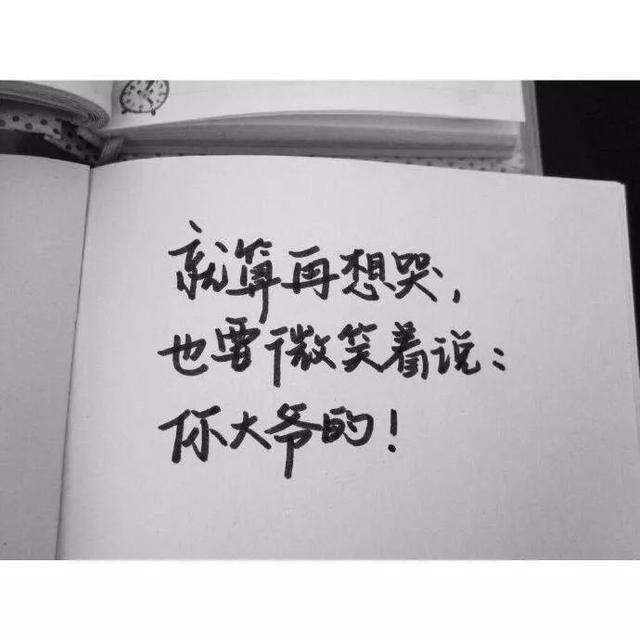 就算再想哭，
也要微笑着说：
你大爷的！